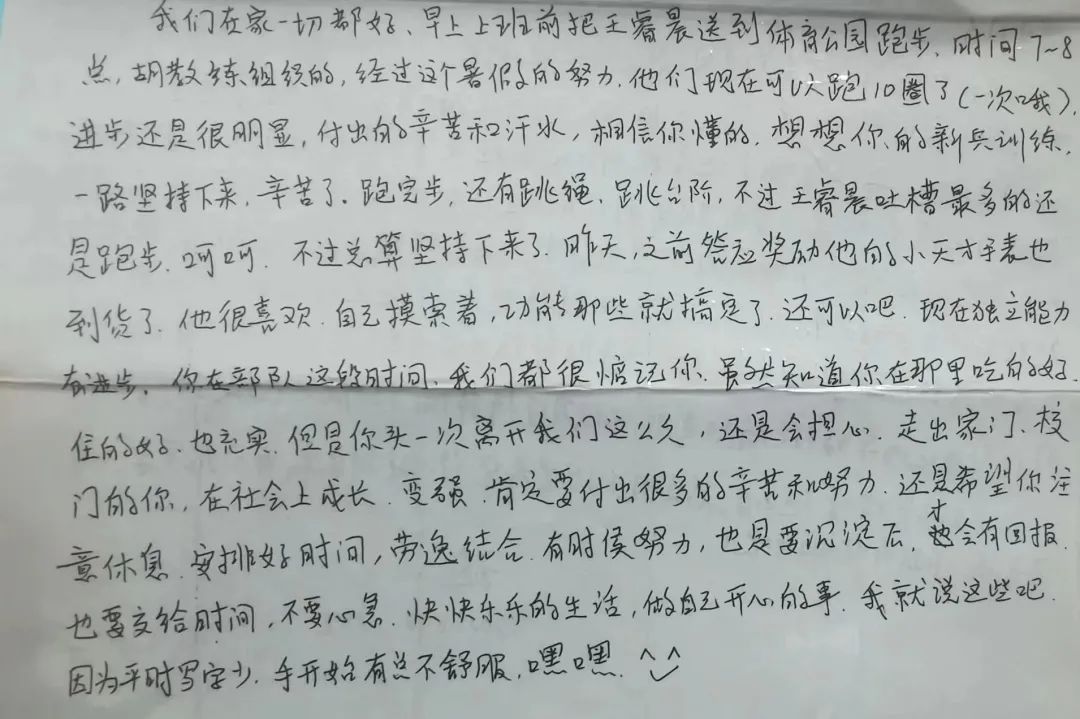 我们在家一切都好、早上上班前把王睿晨送到体育公园跑步.时间7~8
点,胡教练组织的,经过这个暑假的努力.他们现在可以跑10圈了(一次哦),
进步还是很明显,付出的辛苦和汗水,相信你懂的.想想你的新兵训练.
一路坚持下来,辛苦了.跑完步,还有跳绳、跳台阶,不过王睿晨吐槽最多的还
是跑步.呵呵.不过总算坚持下来了.昨天,之前答应奖励他的小天才手表也
到货了.他很喜欢.自己摸索着,功能那些就搞定了.还可以吧.现在独立能力
有进步.你在部队这段时间、我们都很惦记你.虽然知道你在那里吃的好.
住的好、也充实.但是你头一次离开我们这么久,还是会担心.走出家门、校
门的你,在社会上成长.变强.肯定要付出很多的辛苦和努力.还是希望你注
意休息.安排好时间,劳逸结合.有时侯努力,也是要沉淀后,才会有回报.
也要交给时间,不要心急.快快乐乐的生活,做自己开心的事.我就说这些吧.
因为平时写字少.手开始有点不舒服,嘿嘿.^^